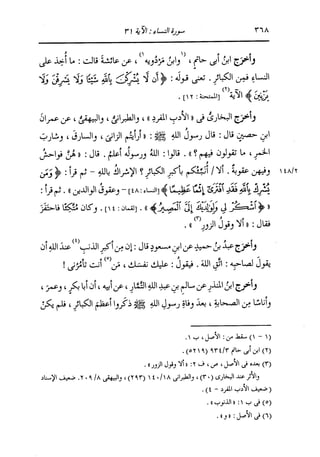 ٣٦٨ سورة النساء : الآية ٣١
وأخرج ابنُ أبى حاتمٍ، (١وابنُ مَرْدُويه١)، عن عائشةَ قالت : ما أُخِذ على
النساءِ فمِن الكبائرِ . تعنى قولَه : ﴿ أَن لَّا يُشْرِكْنَ بِاللَّهِ شَيْئًا وَلَا يَسْرِقْنَ وَلَا
يَزْنِينَ ﴾ الآية(٢) [الممتحنة: ١٢] .
وأخرج البخارىُّ فى « الأدبِ المفردِ »، والطبرانىُّ، والبيهقىُّ، عن عمرانَ
ابنِ حصينٍ قال : قال رسولُ اللهِ ﷺ : « أرأيتُم الزانىَ، والسارقَ، وشاربَ
الخمرِ، ما تقولون فيهم؟ » . قالوا : اللهُ ورسولُه أعلمُ . قال : « هُنَّ فواحشُ
١٤٨/٢ وفيهن عقوبةٌ . ألا / أُنبِّئُكم بأكبرِ الكبائرِ ؟ الإشراكُ باللهِ - ثم قرأ : ﴿ وَمَن
يُشْرِكْ بِاللَّهِ فَقَدِ افْتَرَىٰ إِثْمًا عَظِيمًا ﴾ [النساء : ٤٨] - وعقوقُ الوالدين » . ثم قرأ :
« ﴿ اشْكُرْ لِي وَلِوَالِدَيْكَ إِلَيَّ الْمَصِيرُ ﴾ » . [لقمان : ١٤] . وكان متكئًا فاحتَفَز
فقال : « ألا وقولُ الزورِ(٣) » .
وأخرج عبدُ بنُ حميدٍ عن ابنِ مسعودٍ قال : إن مِن أكبرِ الذنبِ(٤) عندَ اللهِ أن
يقولَ لصاحبِه : اتَّقِ اللهَ . فيقولُ : عليك نفسَك، مَن(٥) أنت تأمُرُنى !
وأخرج ابنُ المنذرِ عن سالمِ بنِ عبدِ اللهِ التَّمَّارِ، عن أبيه، أن أبا بكرٍ، وعمرَ،
وأناسًا مِن الصحابةِ، بعدَ وفاةِ رسولِ اللهِ ﷺ ذكَروا أعظمَ الكبائرِ، فلم يكنْ
(١ - ١) سقط من : الأصل، ب ١.
(٢) ابن أبى حاتم ٩٣٤/٣ (٥٢١٩) .
(٣) بعده فى الأصل، ص، ف ٢ : « ألا وقول الزور » .
والأثر عند البخارى (٣٠)، والطبرانى ١٤٠/١٨ (٢٩٣)، والبيهقى ٢٠٩/٨. ضعيف الإسناد
(ضعيف الأدب المفرد - ٤) .
(٥) فى ب ١ : « الذنوب » .
(٦) فى الأصل : « و » .